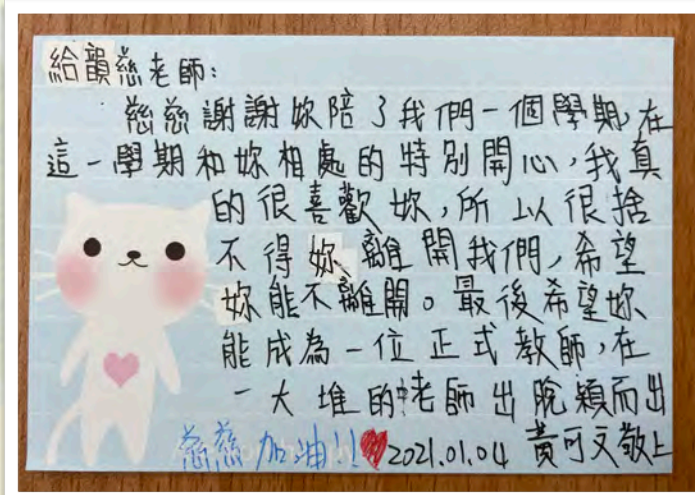 給韻慈老師:
慈慈謝謝妳陪了我們一個學期,在
這一學期和妳相處的特別開心,我真
的很喜歡妳,所以很捨
不得妳離開我們,希望
妳能不離開。最後希望妳
能成為一位正式教師,在
一大堆的老師出脫穎而出
慈慈加油!!❤2021.01.04 黃可文敬上